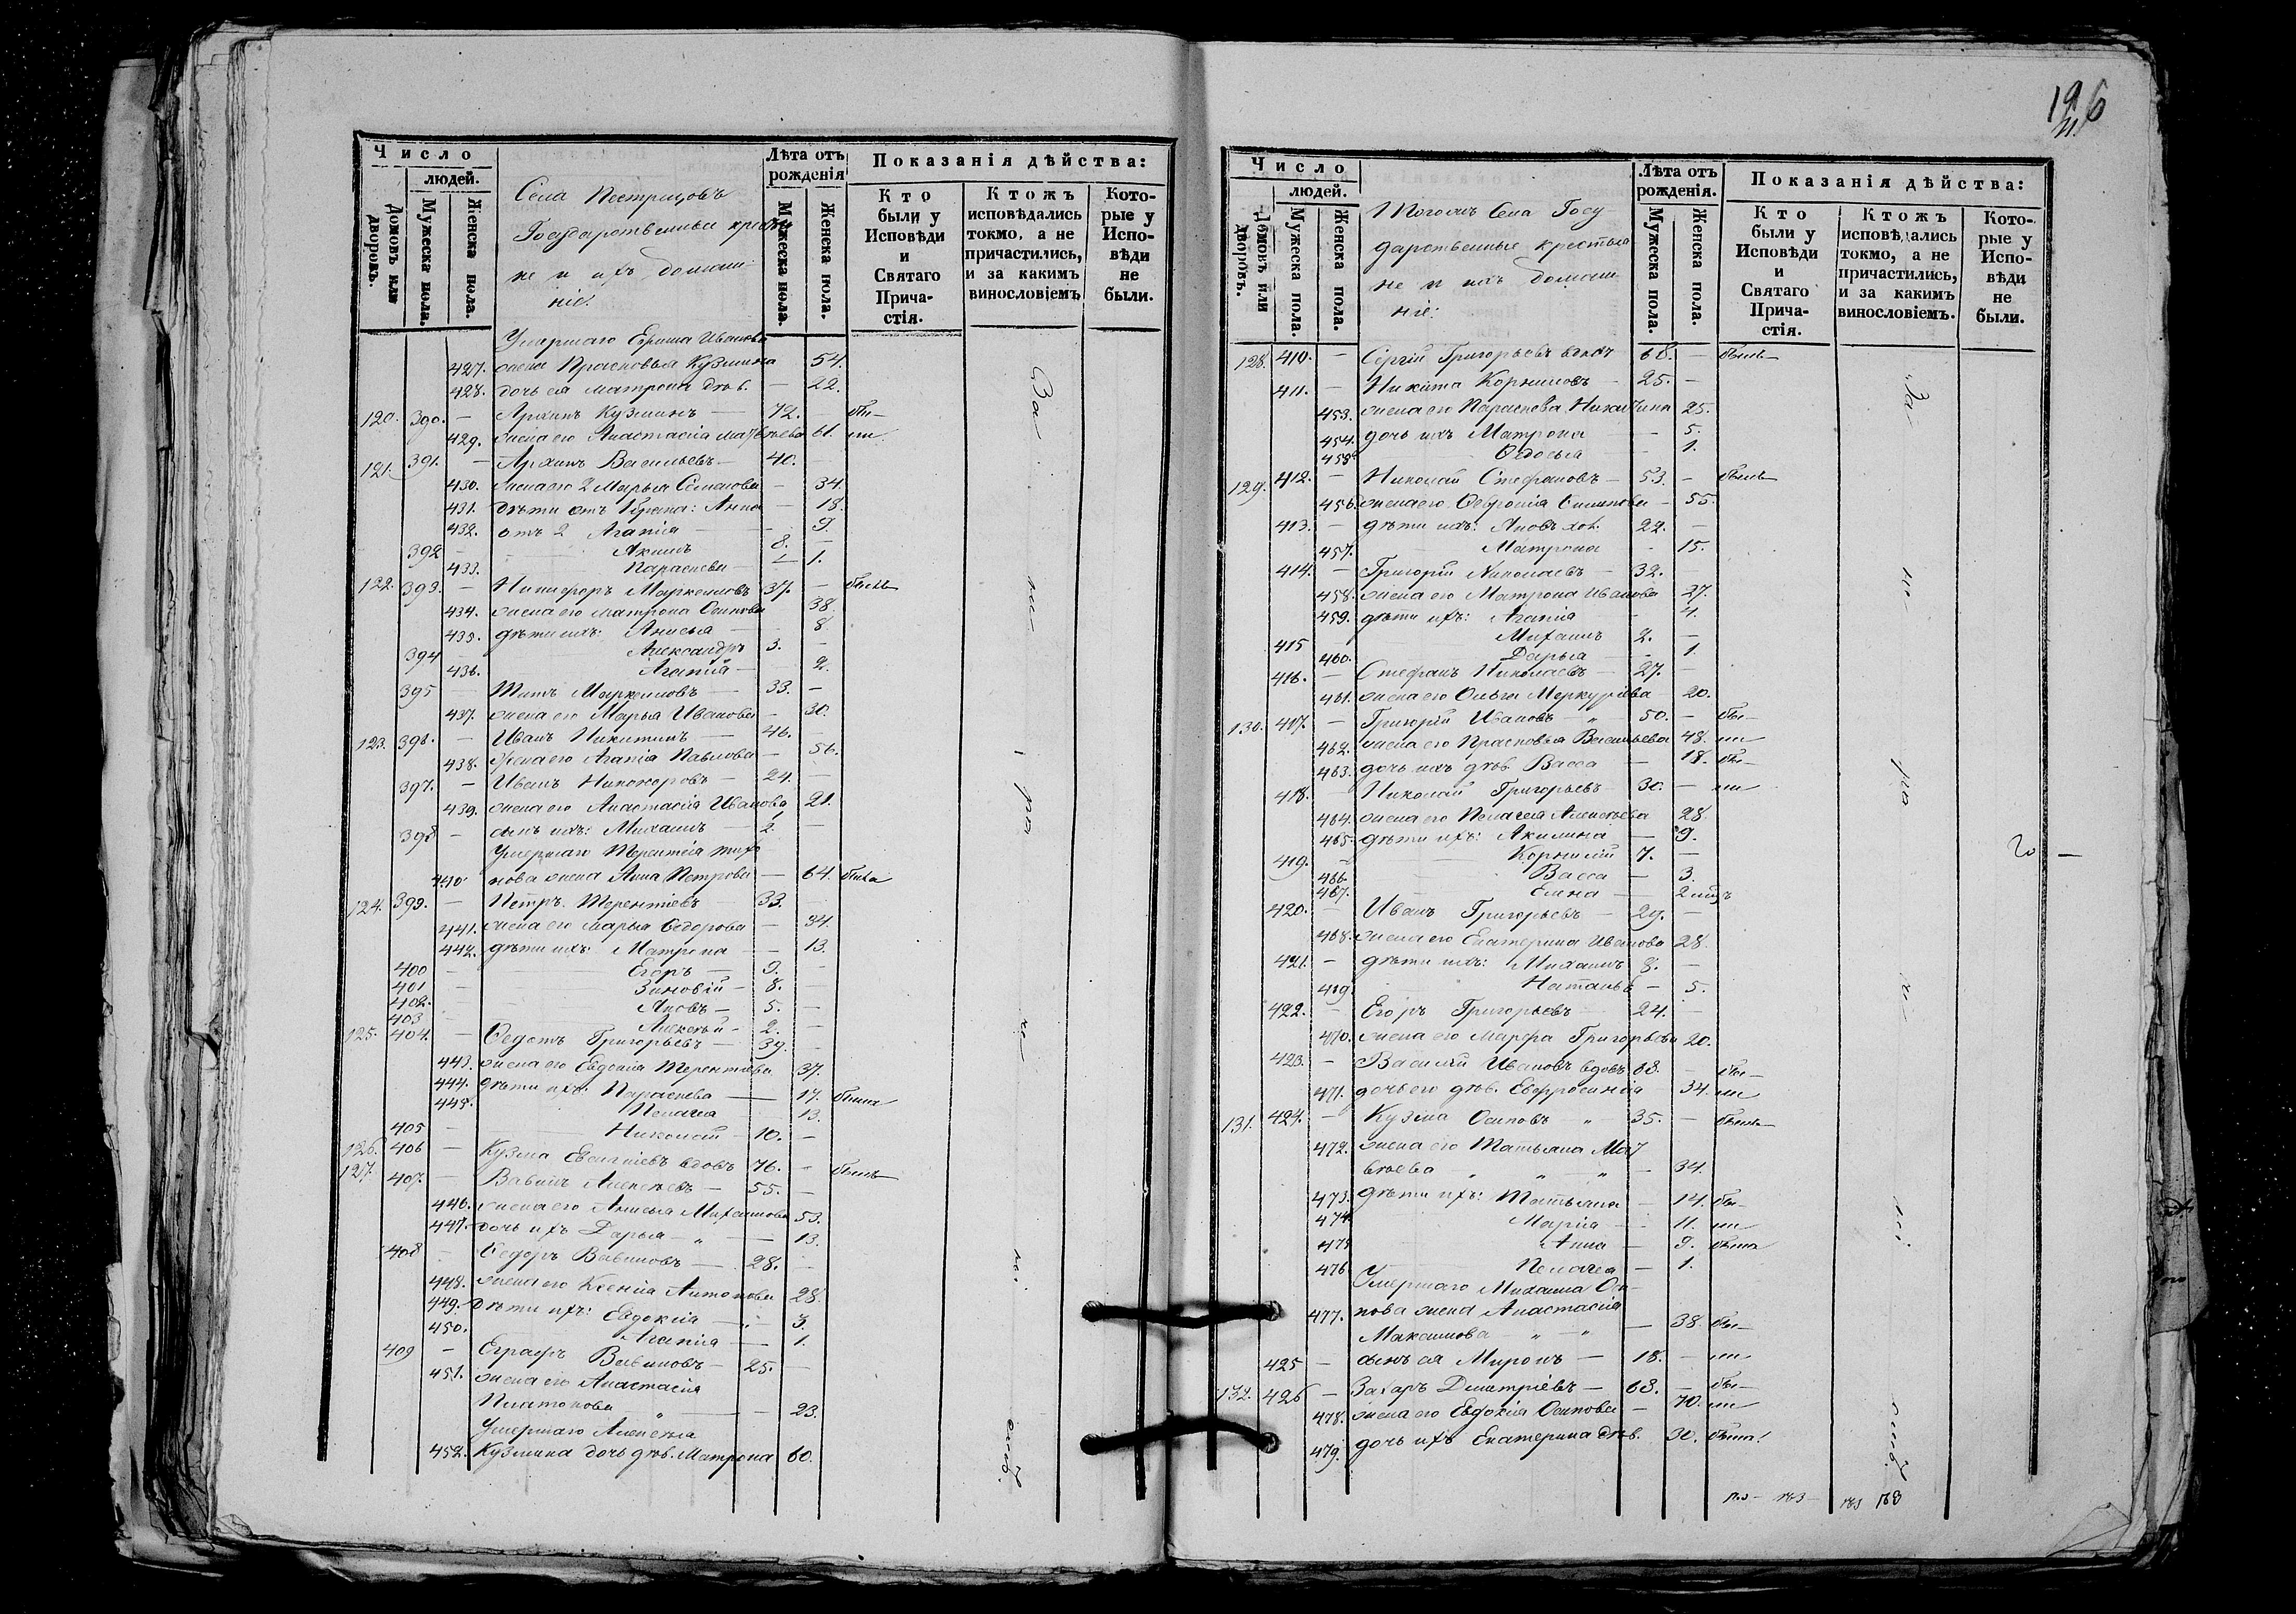 196
Число
людей.
Домовъ или дворовъ.
Мужеска пола.
Женска пола.
Села
Государственные
не и ихъ домаш
ніе.
Лѣта отъ рожденія
Мужеска пола.
Женска пола.
Показанія дѣйства:
Кто были у Исповѣди и Святаго Причастія.
Ктожъ исповѣдались токмо, а не причастились, и за какимъ винословіемъ
Которые у Исповѣди не были.
Умершаго Иванова
427. жена Прасковья Кузмина 54.
428. дочь ея Матрона дѣв. — 22.
120. 390. — Архипъ Кузминъ — 72. — бы—
429. жена его Анастасія Матвѣева 61. ли
121. 391. — Архипъ Васильевъ — 40.
430. жена его 2 Марья Семенова — 34.
431. дѣти отъ 1 брака: Анна — 18.
432. отъ 2 Агапія — 9.
392 — Акимъ 8. —
433. Параскева — 1.
122. 393. — Никифоръ 37. — былъ
434. жена его Матрона Осипова 38.
435. дѣти ихъ: Анисья — 8.
394 — Александръ 3. —
436. Агапія — 2.
395 — Титъ — 33. —
437. жена его Марья Иванова — 30.
123. 396. — Иванъ Никитинъ — 46. —
438. Жена его Агапія Павлова — 56.
397. — Иванъ Никоноровъ — 24. —
439. жена его Анастасія Иванова 21.
398 — сынъ ихъ: Михаилъ — 2. —
Умершаго Терентія
440. жена Анна Петрова — 64. была
124. 399. — Петръ Терентьевъ — 33.
441. жена его Марья Ѳедорова — 34.
442. дѣти ихъ: Матрона — 13.
400 — Егоръ — 9. —
401 — Зиновій — 8.
402. — Яковъ — 5. —
403 — Алексѣй — 2. —
125. 404. — Ѳедотъ Григорьевъ — 39. —
443. жена его Евдокія Терентьева 37.
444. дѣти ихъ: Параскева — 17. была
445. Пелагея 13.
405 — Николай — 10. —
126. 406 — Кузма вдовъ 76. —
127. 407. — Вавилъ Алексѣевъ — 55. — былъ
446. жена его Анисья Михаилова 53.
447. дочь ихъ Дарья — „ — 13.
408 — Ѳедоръ Вавиловъ — 28. —
448. жена его Ксенія Антонова 28.
449. дѣти ихъ: Евдокія — 3.
450. Агапія — 1.
409 — Вавиловъ — 25. —
451. жена его Анастасія
Платонова „ — 23.
Умершаго Алексѣя
452. Кузмина дочь дѣв. Матрона 60.
За
не
ра
Число
людей.
Домовъ или дворовъ.
Мужеска пола.
Женска пола.
Тогожъ Села Госу
дарственные крестья
не и ихъ домаш
ніе:
Лѣта отъ рожденія.
Мужеска пола.
Женска пола.
Показанія дѣйства:
Кто были у Исповѣди и Святаго Причастія.
Ктожъ исповѣдались токмо, а не причастились, и за какимъ винословіемъ.
Которые у Исповѣди не были.
128. 410. — Сергій Григорьевъ вдовъ 68. — былъ
411. — Никита Корниловъ — 25. —
453. жена его Параскева Никитина 25.
454. дочь ихъ Матрона — 5.
Ѳедосья — 1.
129. 412. — Николай Стефановъ — 53. — былъ
456. жена его Ѳевронія — 55.
413. — дѣти ихъ: Яковъ хол. 22. —
457. Матрона — 15.
414. — Григорій Николаевъ — 32. —
458. жена его Матрона Иванова 27.
459. дѣти ихъ: Агапія — 4.
415 Михаилъ 2. —
460. Дарья — 1.
416. — Стефанъ Николаевъ — 27. —
461. жена его Ольга Меркуріева 20.
130. 417. — Григорій Ивановъ — „ 50. — бы—
462. жена его Прасковья Васильева 48. ли
463. дочь ихъ дѣв. Васса — 18. бы—
418. — Николай Григорьевъ 30. — ли
464. жена его Пелагея Алексѣева 28.
465. дѣти ихъ: Акилина — 9.
419. — Корнилій 7. —
466. Васса — 3.
467. Елена — 2
420. — Иванъ Григорьевъ — 29. —
468. жена его Екатерина Иванова 28.
421. — дѣти ихъ: Михаилъ 8. —
Наталья — 5.
422. — Егоръ Григорьевъ — 24. —
470. жена его Марфа Григорьева 20.
423. — Василій Ивановъ вдовъ 63. — бы—
471. дочь его дѣв. Евфросинія 34. ли
131. 424. — Кузма Осиповъ — „ 35. — былъ
472. жена его Татьяна Мат
вѣева „ „ — 34.
473. дѣти ихъ: Татьяна — 14. бы—
474 Марія — 11. ли
475 Анна — 9. была
476 Пелагея — 1.
Умершаго Михаила Оси
477. пова жена Анастасія
Максимова — „ „ — 38. бы—
425 — сынъ ея Миронъ — 18. — ли
132. 426 — Захаръ Димитріевъ — 63. — бы—
478. жена его Евдокія Осипова — 70. ли
479. дочь ихъ Екатерина дѣв. 30. была.
За
не
ра